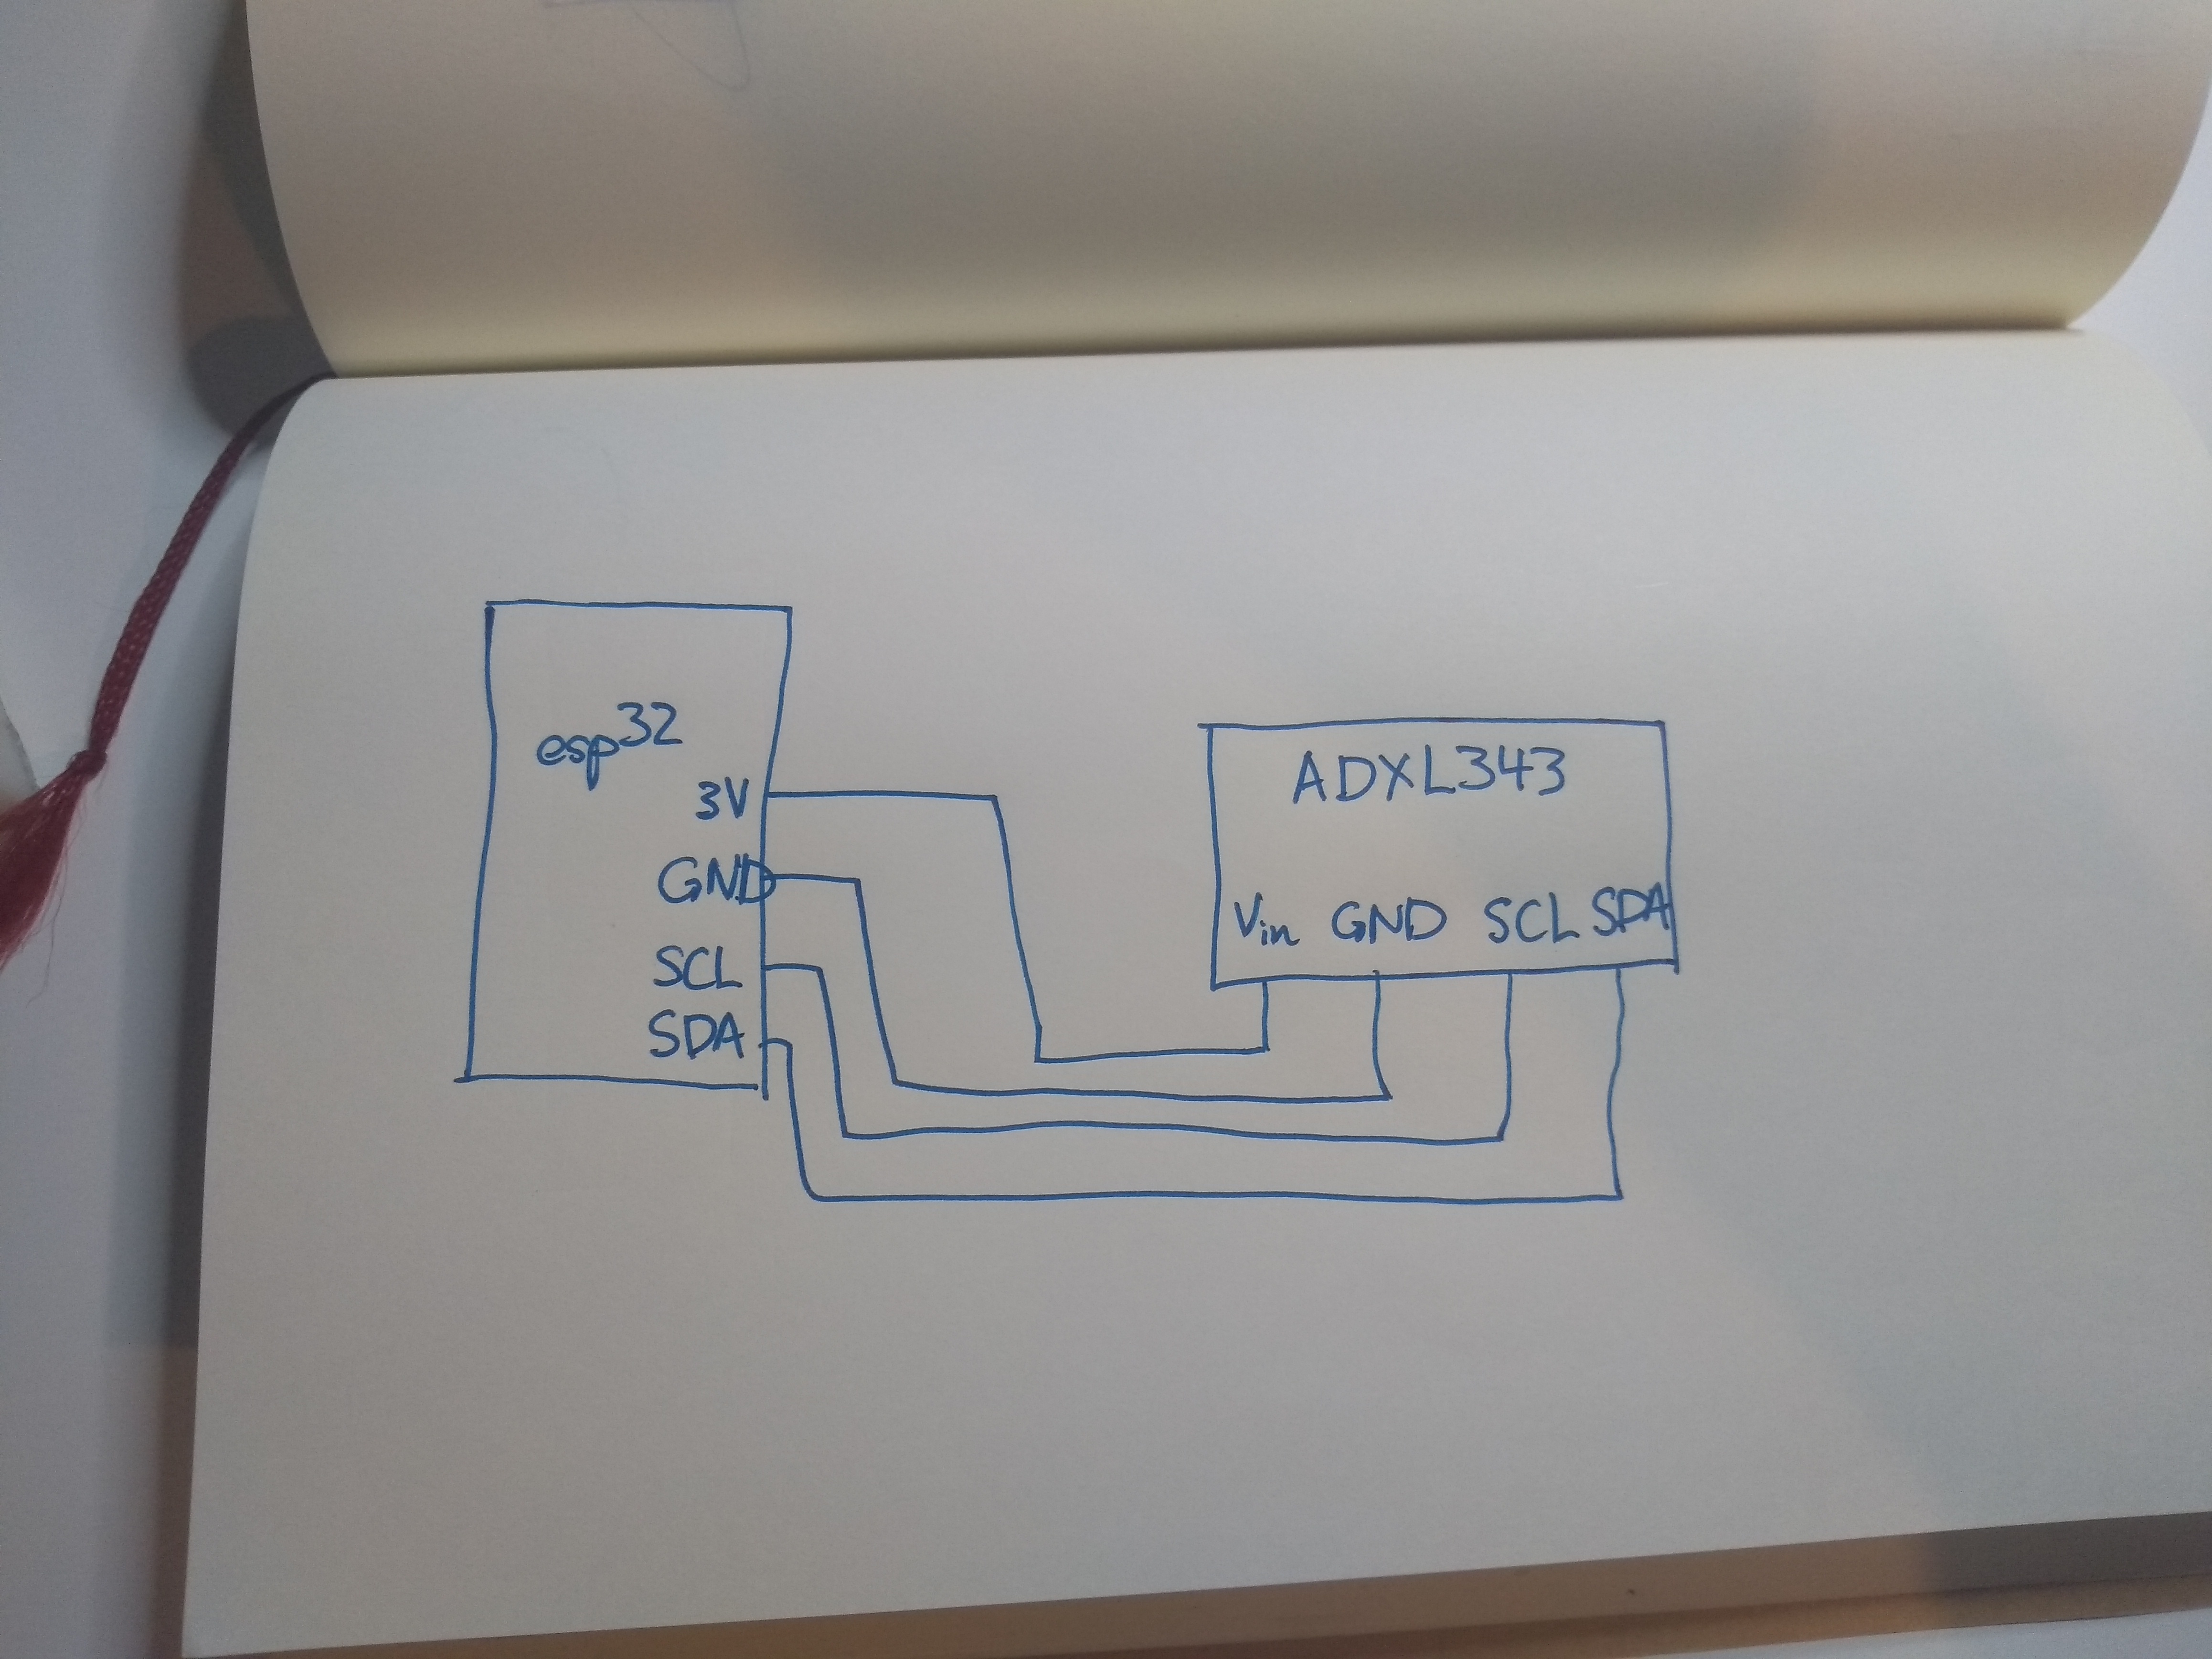 esp32
3V
GND
SCL
SDA
ADXL343
Vin GND SCL SDA